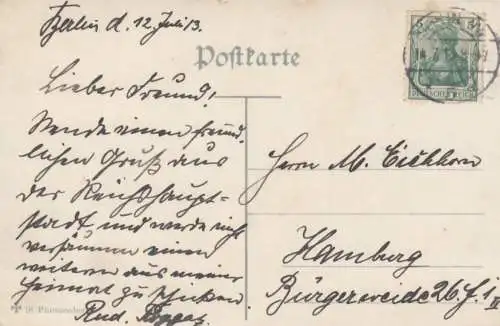 Berlin d. 12 Juli 13.
Postkarte
Lieber Freund!
Sende einen freund-
lichen Gruß aus
der Reichshaupt-
stadt und werde nicht
versäumen einen
weitern aus meiner
Heimat zu schicken
Rud.
Herrn M. Eichhorn
Hamburg
Bürgerweide 26
DEUTSCHES REICH